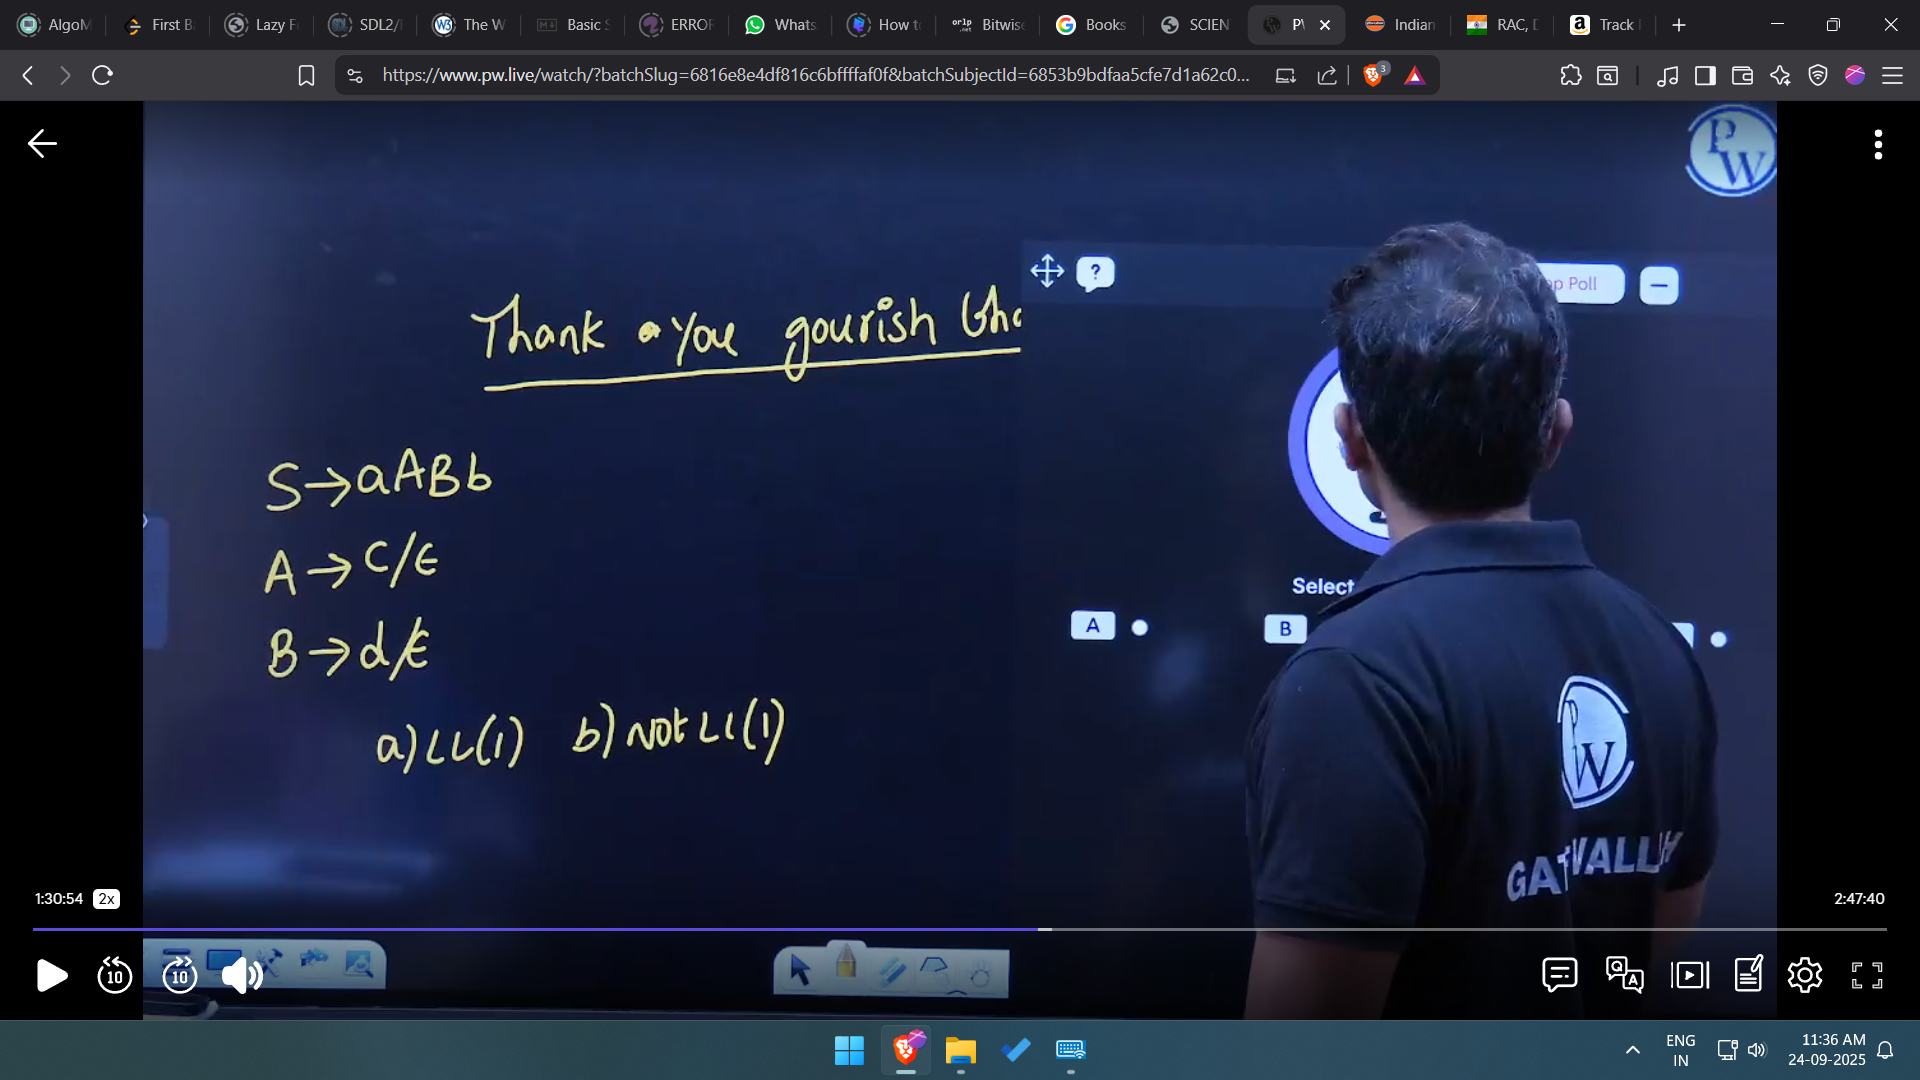 AlgoM
First B
Lazy F
SDL2/
The W
Basic S
ERROR
Whats
How t
orlp .net
Bitwise
Books
SCIEN
PW
Indian
RAC, D
Track
https://www.pw.live/watch/?batchSlug=6816e8e4df816c6bffffaf0f&batchSubjectId=6853b9bdfaa5cfe7d1a62c0...
3
PW
? op Poll
Thank you gourish Gho
S→aABb
A→C/ε
B→d/ε
Select
A B
a)LL(1) b)NOt LL(1)
PW
GATE WALLAH
1:30:54 2x
2:47:40
10 10
Q A
ENG
IN
11:36 AM
24-09-2025